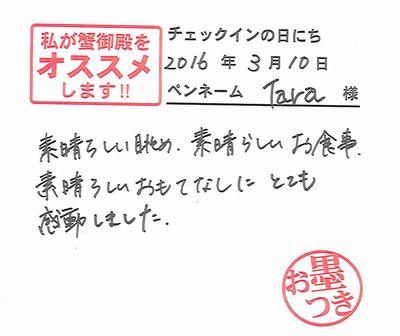 私が蟹御殿を
オススメ
します!!
チェックインの日にち
2016 年 3 月 10 日
ペンネーム Tara 様
素晴らしい眺め、素晴らしいお食事、
素晴らしいおもてなしに とても
感動しました。
お墨
つき